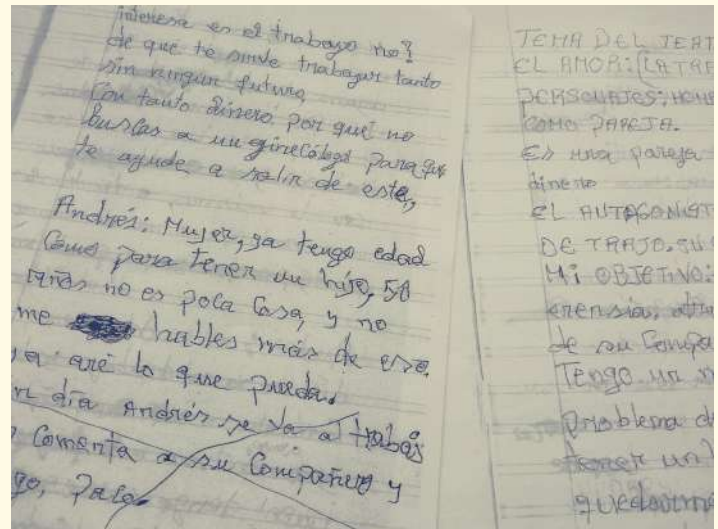 interesa es el trabajo no?
de que te sirve trabajar tanto
sin ningun futuro,
Con tanto dinero por qué no
buscas a un ginecólogo para que
te ayude a salir de este,
Andrés: Mujer, ya tengo edad
Como para tener un hijo, 50
años no es poca Cosa, y no
me hables más de eso.
ya aré lo que pueda.
un día Andrés se va al trabajo
Comenta a su Compañero y
go, Paco
TEMA DEL TEAT
EL AMOR: (LA TRA
PERSONAJES: HOM
COMO PAREJA.
Es una pareja
dinero
EL ANTAGONIST
DE TRAJO. SU
MI OBJETIVO:
erensia, atra
de su Compa
Tengo un
problema d
tener un
quedarme